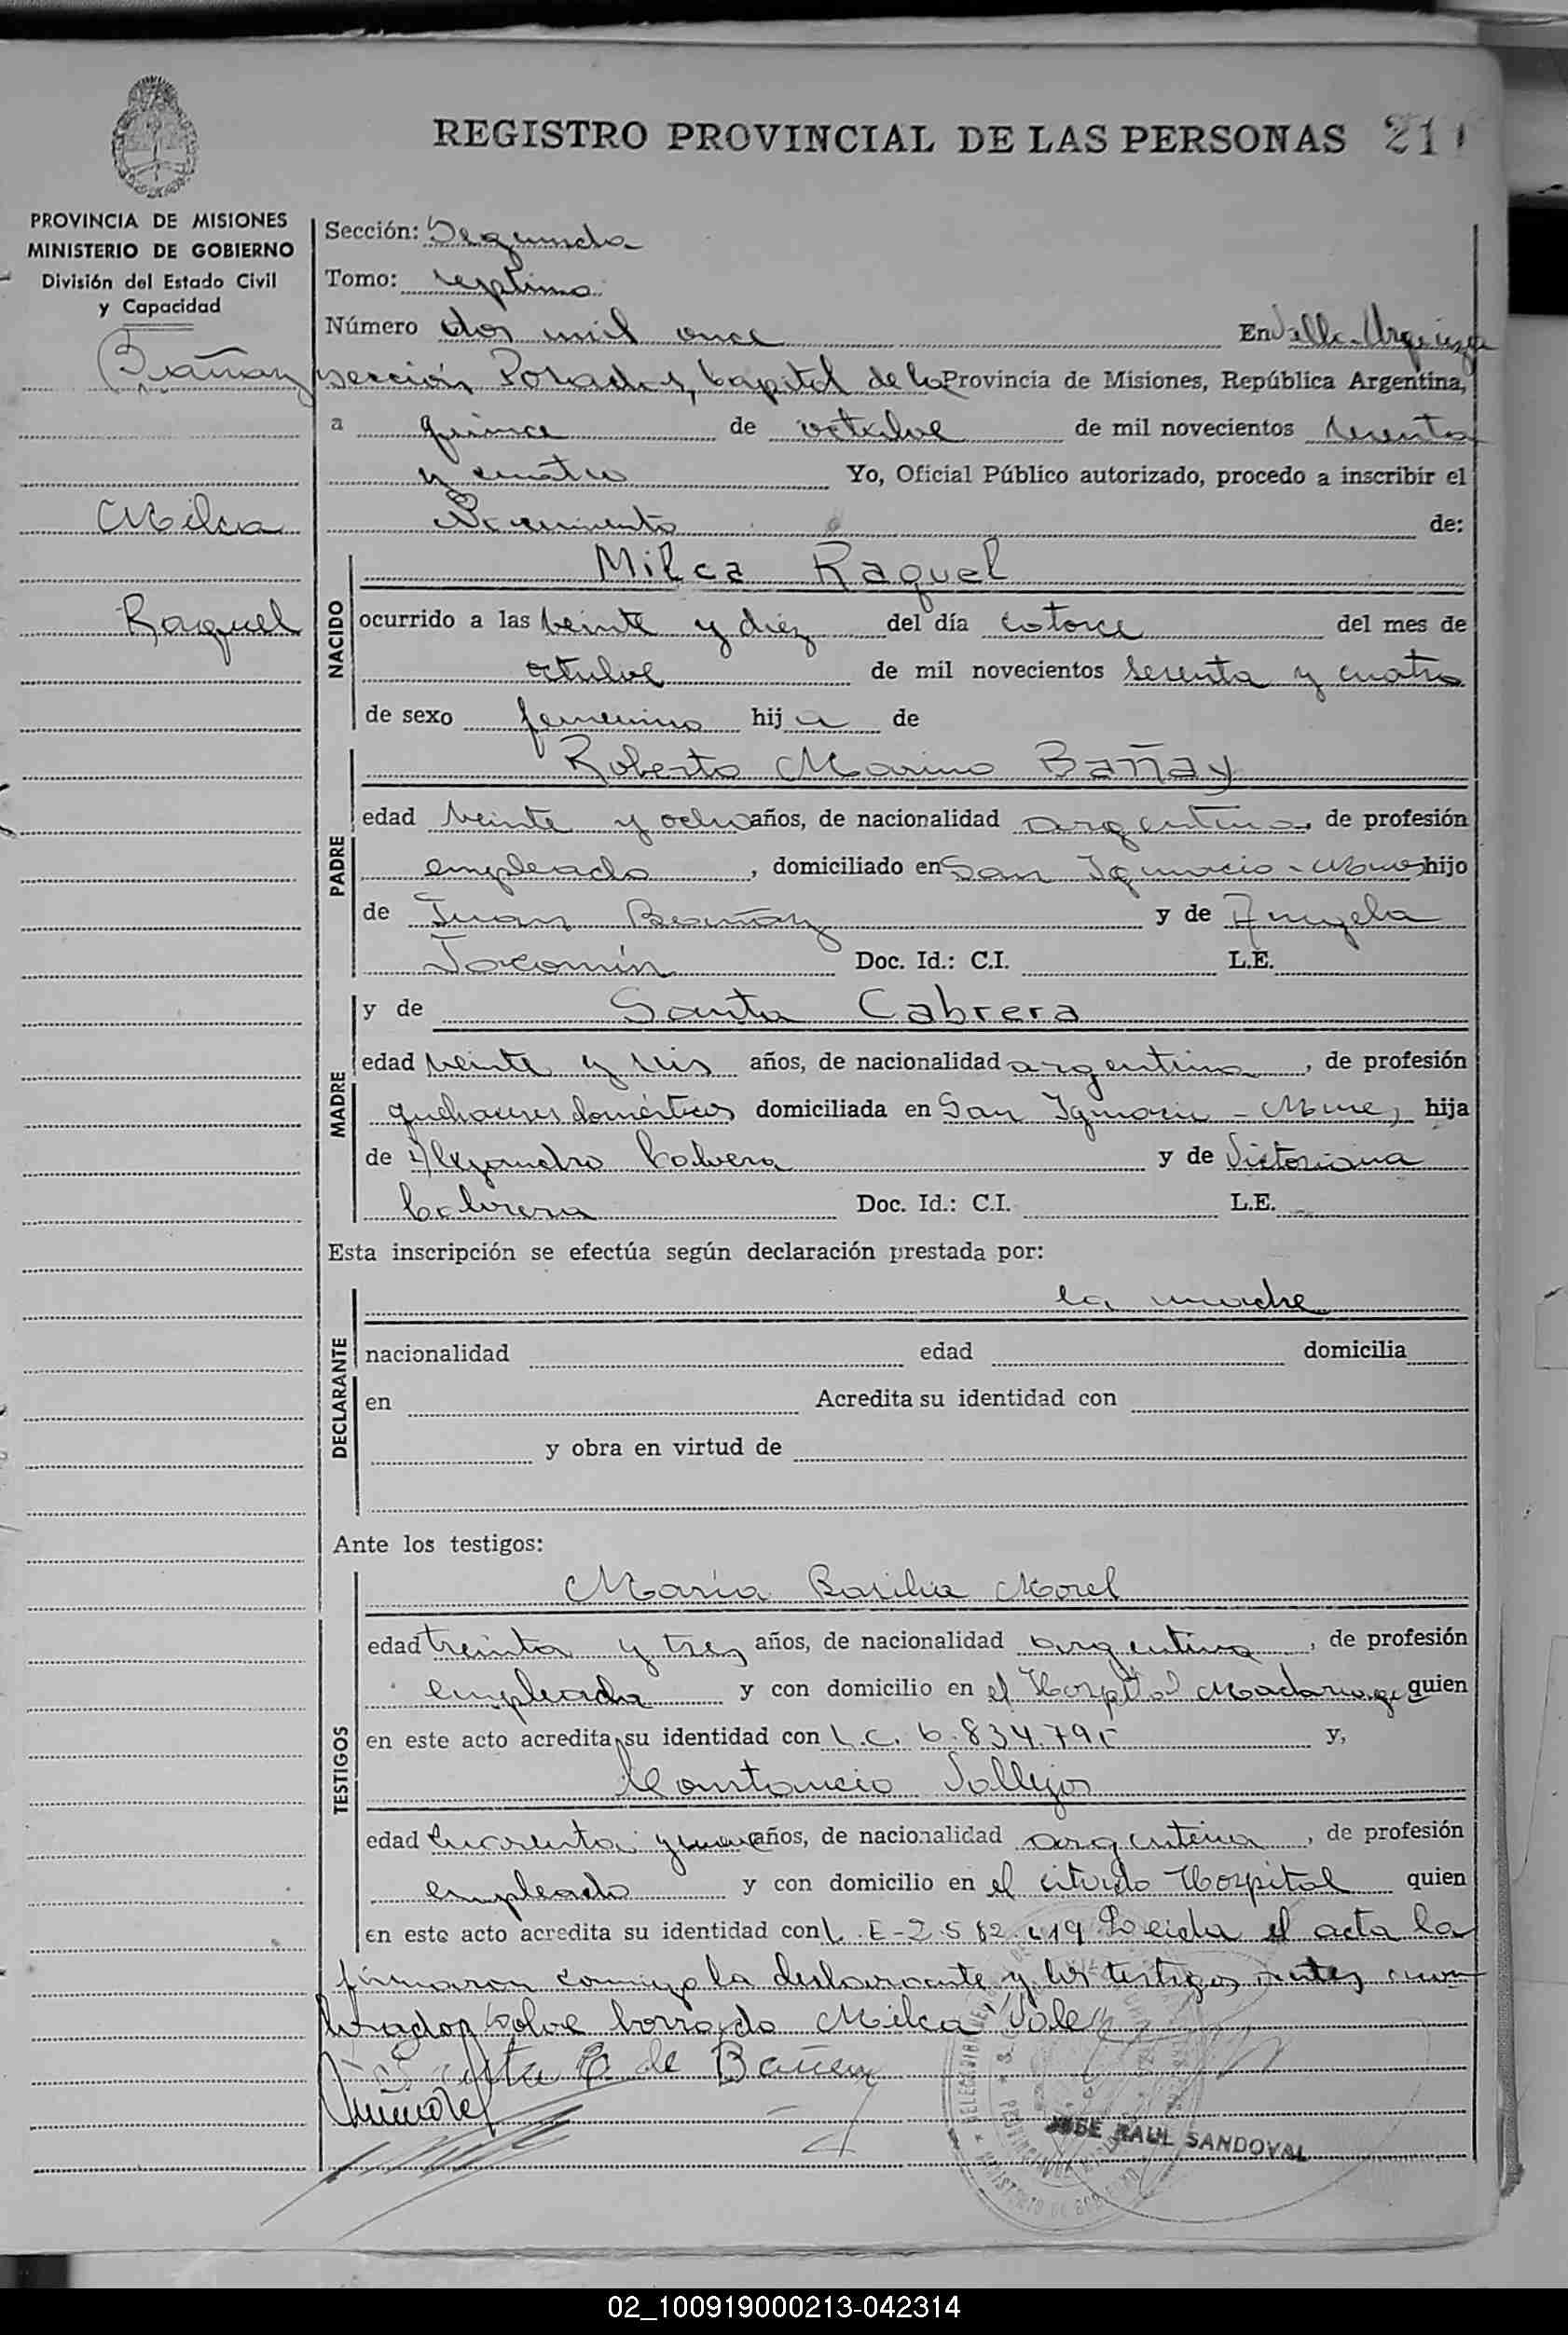 REGISTRO PROVINCIAL DE LAS PERSONAS 211
PROVINCIA DE MISIONES
MINISTERIO DE GOBIERNO
División del Estado Civil
y Capacidad
Bañay
Milca
Raquel
Sección: Segunda
Tomo: septimo
Número dos mil once En Villa Urquiza
sección Posadas, Capital de la Provincia de Misiones, República Argentina,
a quince de octubre de mil novecientos sesenta
y cuatro Yo, Oficial Público autorizado, procedo a inscribir el
Nacimiento de:
NACIDO
Milca Raquel
ocurrido a las veinte y diez del día catorce del mes de
octubre de mil novecientos sesenta y cuatro
de sexo femenino hija de
PADRE
Roberto Marino Bañay
edad veinte y ocho años, de nacionalidad argentina, de profesión
empleado, domiciliado en San Ignacio - Mnes hijo
de Juan Bañay y de Angela
Jacomín Doc. Id.: C.I. L.E.
MADRE
y de Santa Cabrera
edad veinte y seis años, de nacionalidad argentina, de profesión
quehaceres domésticos domiciliada en San Ignacio - Mnes, hija
de Alejandro Cabrera y de Victoriana
Cabrera Doc. Id.: C.I. L.E.
Esta inscripción se efectúa según declaración prestada por:
DECLARANTE
la madre
nacionalidad edad domicilia
en Acredita su identidad con
y obra en virtud de
Ante los testigos:
TESTIGOS
María Basilia Morel
edad treinta y tres años, de nacionalidad argentina, de profesión
empleada y con domicilio en el Hospital Madariaga quien
en este acto acredita su identidad con L.C. 6.834.795 y,
Constancio Vallejos
edad cuarenta y nueve años, de nacionalidad argentina, de profesión
empleado y con domicilio en el citado Hospital quien
en este acto acredita su identidad con L.E-2.582.419 Leida el acta la
firmaron conmigo la declarante y los testigos antes nom
brados Sobre borrado Milca Vale
Santa C de Bañay
JOSE RAUL SANDOVAL
02_100919000213-042314